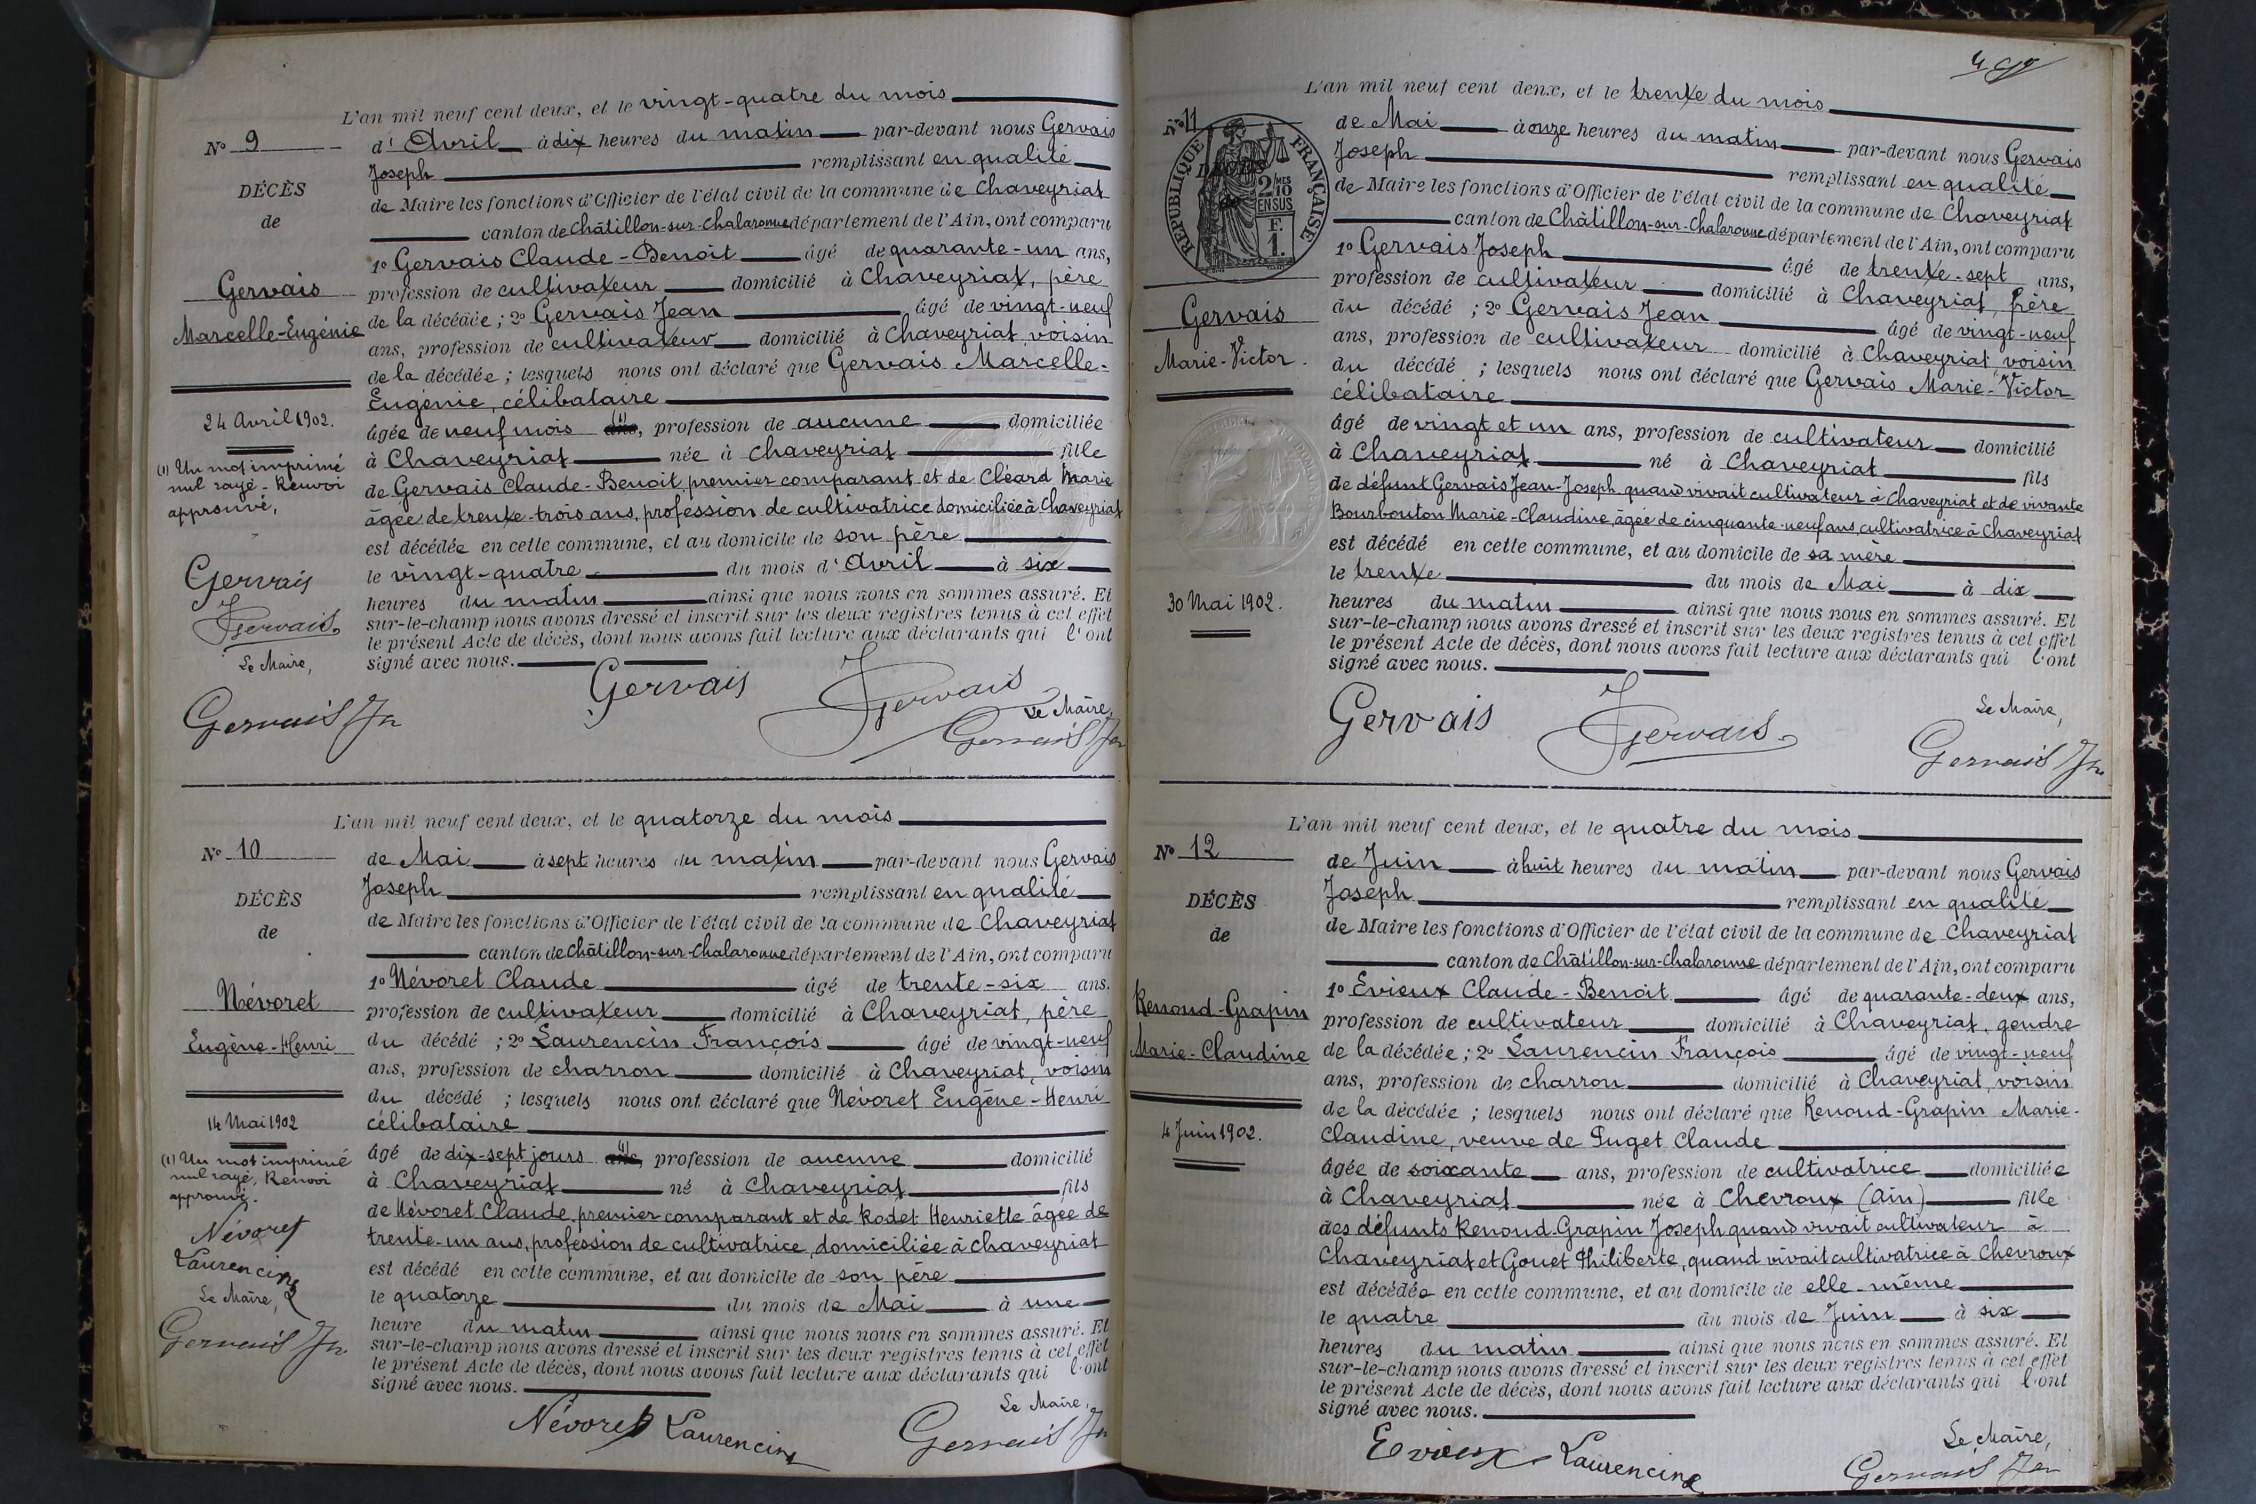 L'an mil neuf cent deux, et le vingt-quatre du mois
N° 9
d'Avril à dix heures du matin par-devant nous Gervais
Joseph remplissant en qualité
DÉCÈS
de Maire les fonctions d'Officier de l'état civil de la commune de Chaveyriat
de
canton de Châtillon-sur-Chalaronne département de l'Ain, ont comparu
1° Gervais Claude-Benoit âgé de quarante-un ans,
Gervais
profession de cultivateur domicilié à Chaveyriat, père
Marcelle-Eugénie
de la décédée ; 2° Gervais Jean âgé de vingt-neuf
ans, profession de cultivateur domicilié à Chaveyriat voisin
de la décédée ; lesquels nous ont déclaré que Gervais Marcelle-
Eugénie, célibataire
24 Avril 1902.
âgée de neuf mois (1) ans, profession de aucune domiciliée
à Chaveyriat née à Chaveyriat fille
(1) Un mot imprimé
nul rayé - Renvoi
approuvé,
de Gervais Claude-Benoit premier comparant et de Cléard Marie
âgée de trente-trois ans, profession de cultivatrice domiciliée à Chaveyriat
est décédée en cette commune, et au domicile de son père
le vingt-quatre du mois d'Avril à six
heures du matin ainsi que nous nous en sommes assuré. Et
sur-le-champ nous avons dressé et inscrit sur les deux registres tenus à cet effet
le présent Acte de décès, dont nous avons fait lecture aux déclarants qui l'ont
signé avec nous.
Gervais
Gervais
Le Maire,
Gervais Jh
Gervais
Gervais
Le Maire,
Gervais Jh
L'an mil neuf cent deux, et le quatorze du mois
N° 10
de Mai à sept heures du matin par-devant nous Gervais
Joseph remplissant en qualité
DÉCÈS
de Maire les fonctions d'Officier de l'état civil de la commune de Chaveyriat
de
canton de Châtillon-sur-Chalaronne département de l'Ain, ont comparu
1° Névoret Claude âgé de trente-six ans.
Névoret
profession de cultivateur domicilié à Chaveyriat, père
Eugène-Henri
du décédé ; 2° Laurencin François âgé de vingt-neuf
ans, profession de charron domicilié à Chaveyriat, voisin
du décédé ; lesquels nous ont déclaré que Névoret Eugène-Henri
célibataire
14 Mai 1902
âgé de dix-sept jours (1) ans, profession de aucune domicilié
(1) Un mot imprimé
nul rayé, Renvoi
approuvé.
à Chaveyriat né à Chaveyriat fils
de Névoret Claude, premier comparant et de Rodet Henriette âgée de
trente-un ans, profession de cultivatrice, domiciliée à Chaveyriat
est décédé en cette commune, et au domicile de son père
le quatorze du mois de Mai à une
heure du matin ainsi que nous nous en sommes assuré. Et
sur-le-champ nous avons dressé et inscrit sur les deux registres tenus à cet effet
le présent Acte de décès, dont nous avons fait lecture aux déclarants qui l'ont
signé avec nous.
Névoret
Laurencin
Le Maire,
Gervais Jh
Névoret Laurencin
Le Maire,
Gervais Jh
L'an mil neuf cent deux, et le trente du mois
N° 11
de Mai à onze heures du matin par-devant nous Gervais
Joseph remplissant en qualité
RÉPUBLIQUE FRANÇAISE
2/10MES
EN SUS
F.
1.
DÉCÈS
de
de Maire les fonctions d'Officier de l'état civil de la commune de Chaveyriat
canton de Châtillon-sur-Chalaronne département de l'Ain, ont comparu
1° Gervais Joseph âgé de trente-sept ans,
profession de cultivateur domicilié à Chaveyriat, frère
Gervais
Marie-Victor.
du décédé ; 2° Gervais Jean âgé de vingt-neuf
ans, profession de cultivateur domicilié à Chaveyriat, voisin
du décédé ; lesquels nous ont déclaré que Gervais Marie-Victor
célibataire
âgé de vingt et un ans, profession de cultivateur domicilié
à Chaveyriat né à Chaveyriat fils
de défunt Gervais Jean-Joseph quand vivait cultivateur à Chaveyriat et de vivante
Bourbouton Marie-Claudine, âgée de cinquante-neuf ans, cultivatrice à Chaveyriat
est décédé en cette commune, et au domicile de sa mère
le trente du mois de Mai à dix
30 Mai 1902.
heures du matin ainsi que nous nous en sommes assuré. Et
sur-le-champ nous avons dressé et inscrit sur les deux registres tenus à cet effet
le présent Acte de décès, dont nous avons fait lecture aux déclarants qui l'ont
signé avec nous.
Gervais
Gervais
Le Maire,
Gervais Jh
L'an mil neuf cent deux, et le quatre du mois
N° 12
de Juin à huit heures du matin par-devant nous Gervais
Joseph remplissant en qualité
DÉCÈS
de Maire les fonctions d'Officier de l'état civil de la commune de Chaveyriat
de
canton de Châtillon-sur-Chalaronne département de l'Ain, ont comparu
1° Evieux Claude-Benoit âgé de quarante-deux ans,
Renoud-Grapin
profession de cultivateur domicilié à Chaveyriat, gendre
Marie-Claudine
de la décédée ; 2° Laurencin François âgé de vingt-neuf
ans, profession de charron domicilié à Chaveyriat, voisin
de la décédée ; lesquels nous ont déclaré que Renoud-Grapin Marie-
4 Juin 1902.
Claudine, veuve de Puget Claude
âgée de soixante ans, profession de cultivatrice domiciliée
à Chaveyriat née à Chevroux (Ain) fille
des défunts Renoud-Grapin Joseph quand vivait cultivateur à
Chaveyriat et Gouet Philiberte, quand vivait cultivatrice à Chevroux
est décédée en cette commune, et au domicile de elle-même
le quatre du mois de Juin à six
heures du matin ainsi que nous nous en sommes assuré. Et
sur-le-champ nous avons dressé et inscrit sur les deux registres tenus à cet effet
le présent Acte de décès, dont nous avons fait lecture aux déclarants qui l'ont
signé avec nous.
Evieux Laurencin
Le Maire,
Gervais Jh